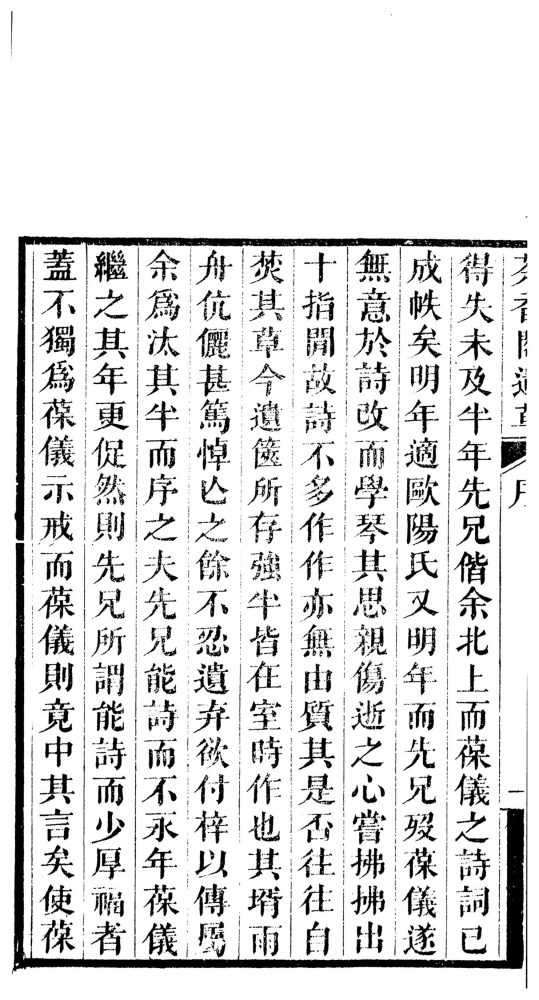 得失未及半年先兄偕余北上而葆儀之詩詞已
成帙矣明年適歐陽氏又明年而先兄歿葆儀遂
無意於詩改而學琴其思親傷逝之心嘗拂拂出
十指閒故詩不多作作亦無由質其是否往往自
焚其草今遺篋所存強半皆在室時作也其壻雨
舟伉儷甚篤悼亾之餘不忍遺弃欲付梓以傳屬
余爲汰其半而序之夫先兄能詩而不永年葆儀
繼之其年更促然則先兄所謂能詩而少厚福者
蓋不獨爲葆儀示戒而葆儀則竟中其言矣使葆